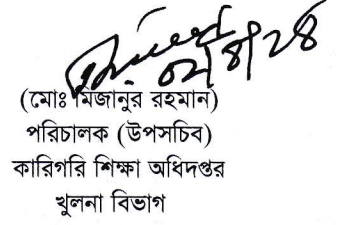 ০৮/৪/২৪
(মোঃ মিজানুর রহমান)
পরিচালক (উপসচিব)
কারিগরি শিক্ষা অধিদপ্তর
খুলনা বিভাগ